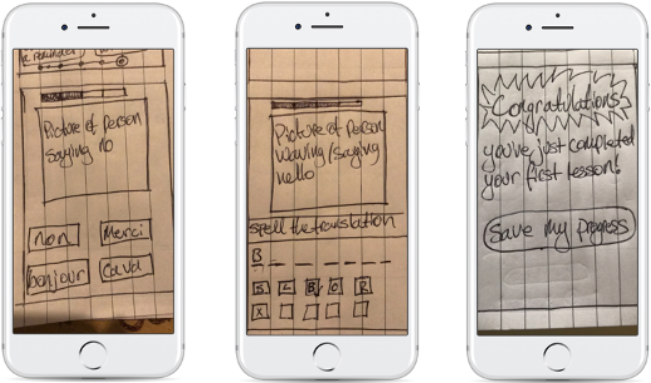 a reminder
Picture of Person
saying no
non Merci
bonjour Ca va
Picture of Person
waving/saying
hello
spell the translation
B
S L B O R
X
Congratulations
you've just completed
your first lesson!
Save my progress